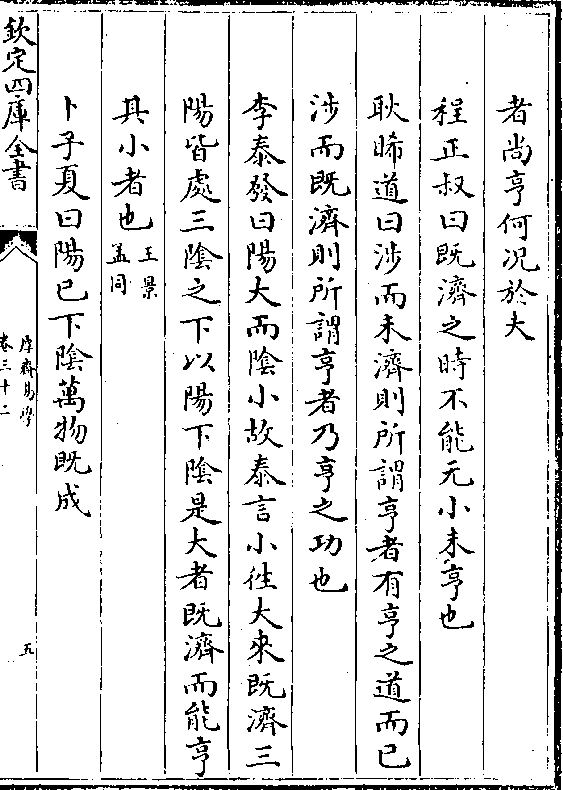 者尚亨何况於大
程正叔曰既濟之時不能无小未亨也
耿晞道曰涉而未濟則所謂亨者有亨之道而已
涉而既濟則所謂亨者乃亨之功也
李泰發曰陽大而陰小故泰言小徃大來既濟三
陽皆處三陰之下以陽下陰是大者既濟而能亨
其小者也王景
孟同
卜子夏曰陽已下陰萬物既成
欽定四庫全書
厚齋易學
卷三十二
五